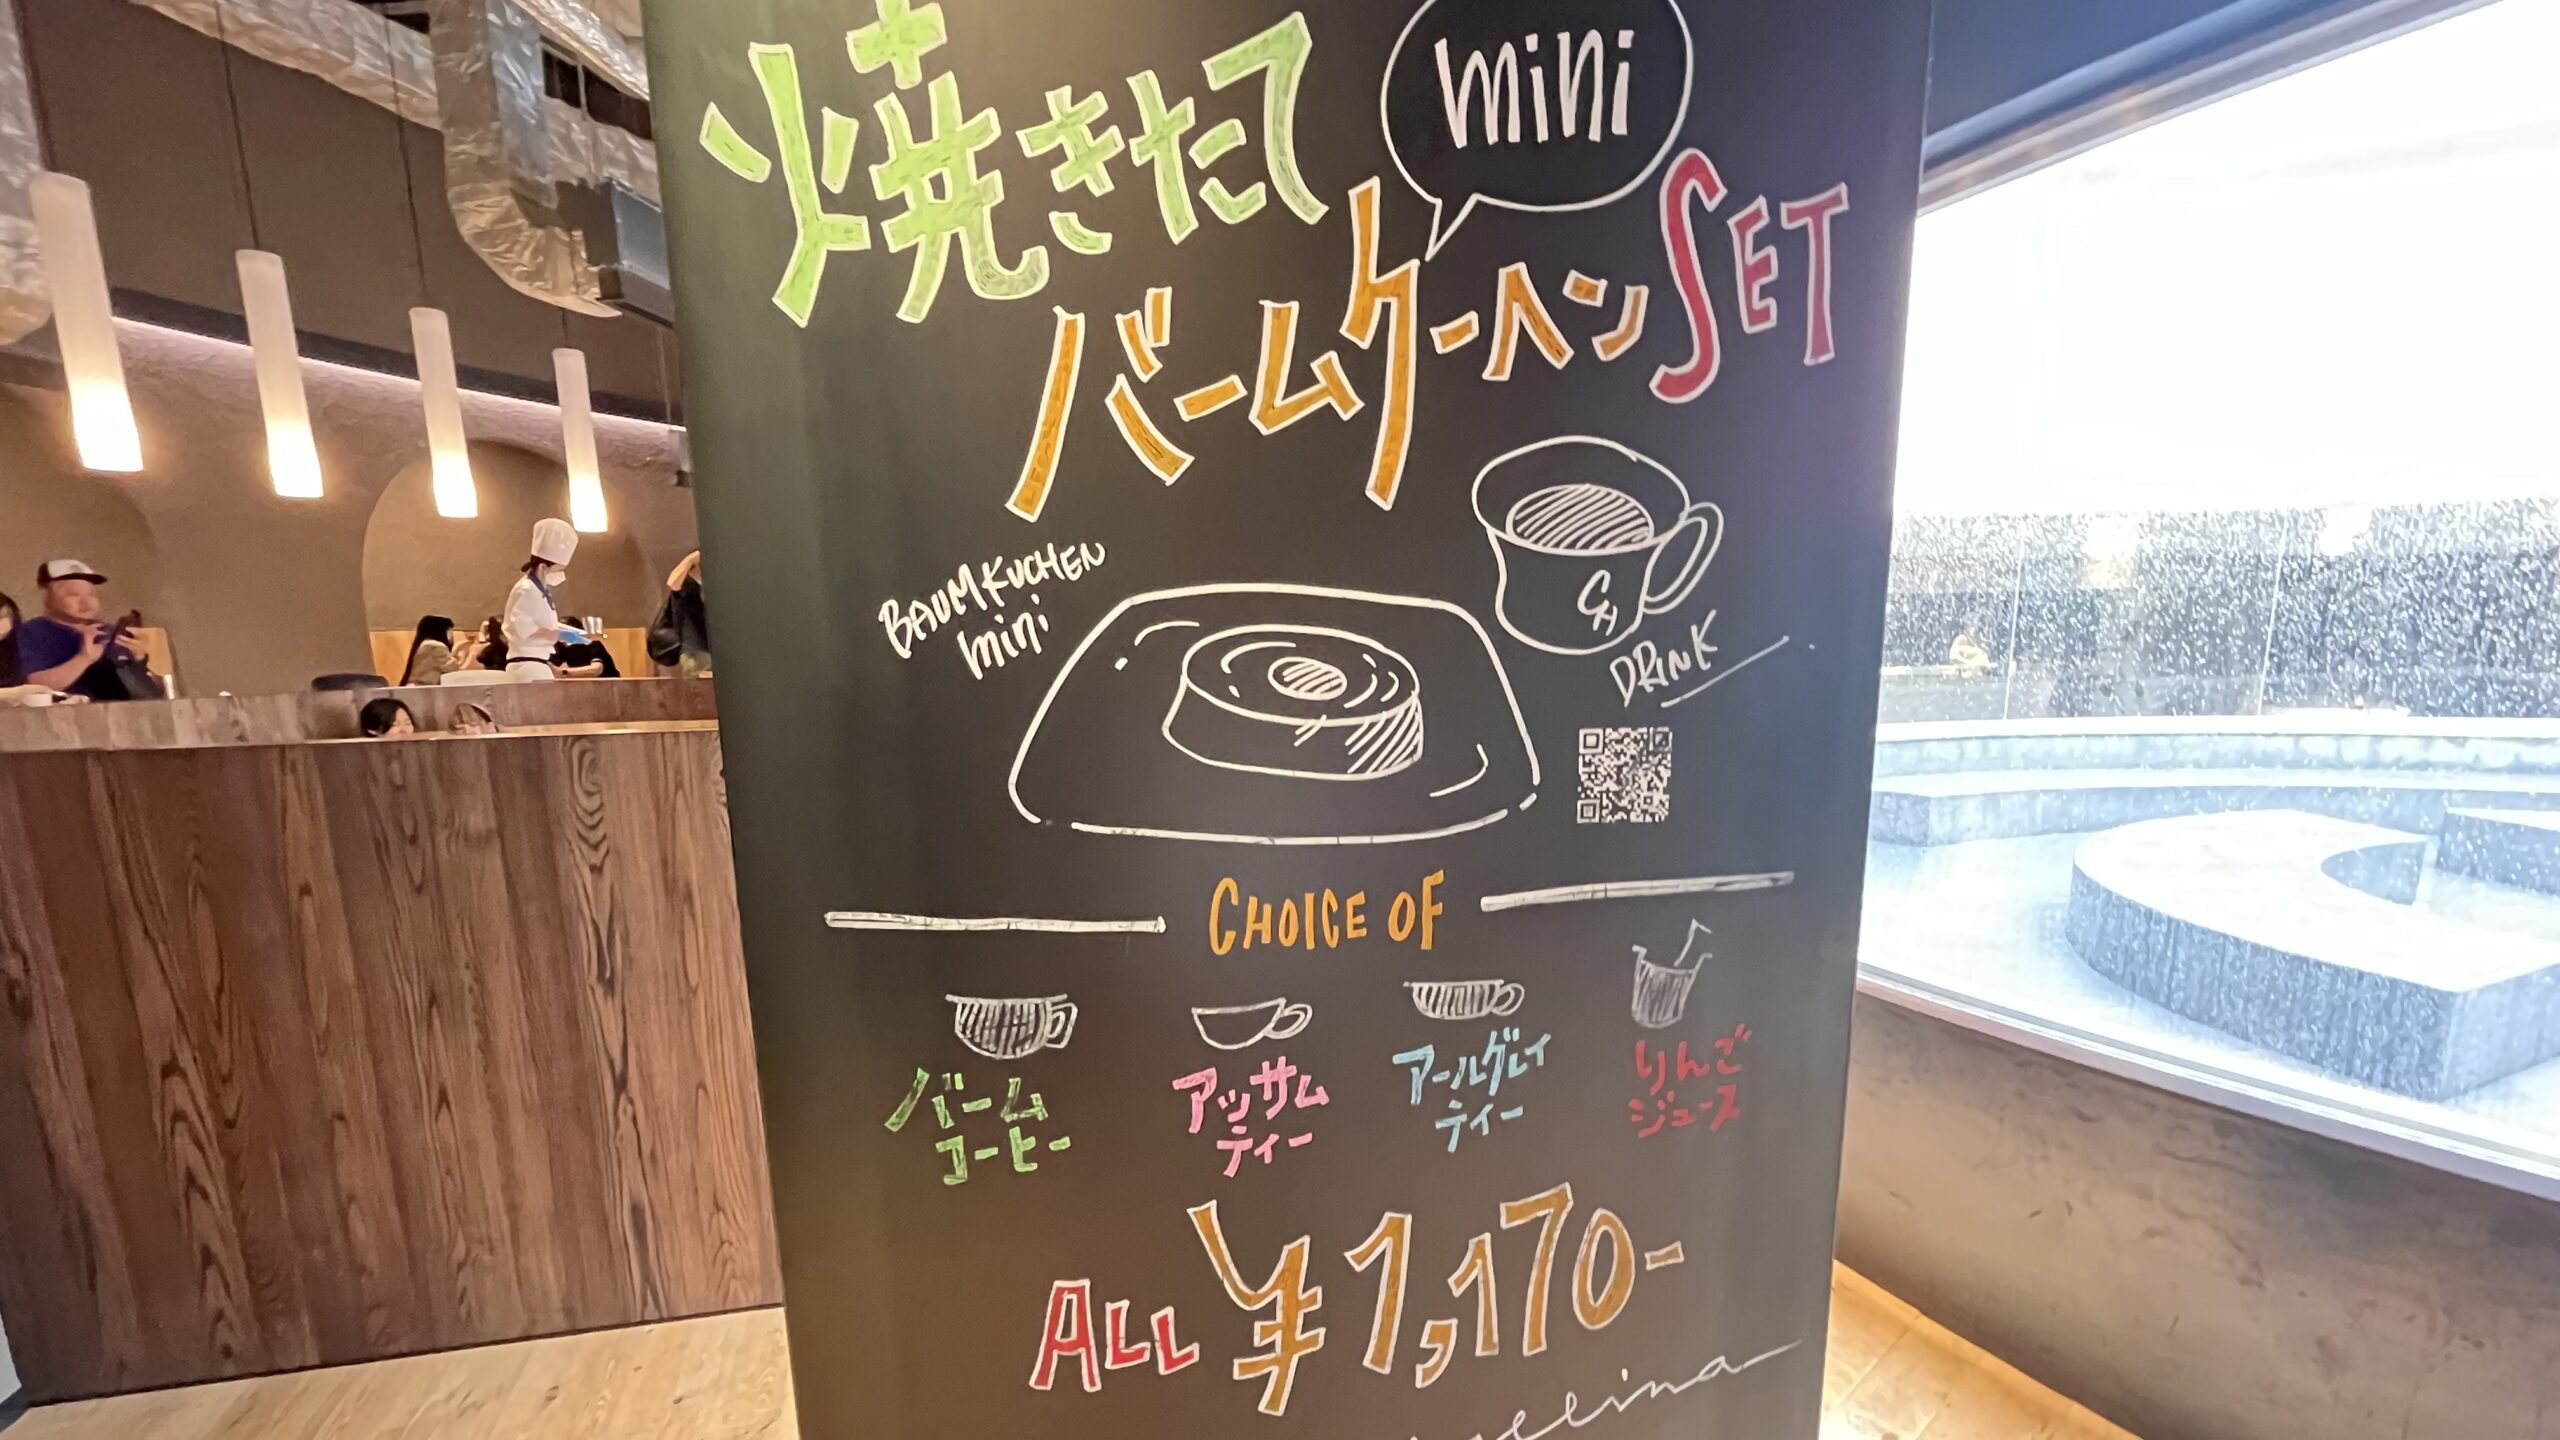 焼きたて
mini
バームクーヘンSET
BAUMKUCHEN
mini
CH
DRINK
CHOICE OF
バーム
コーヒー
アッサム
ティー
アールグレイ
ティー
りんご
ジュース
ALL ¥1,170-